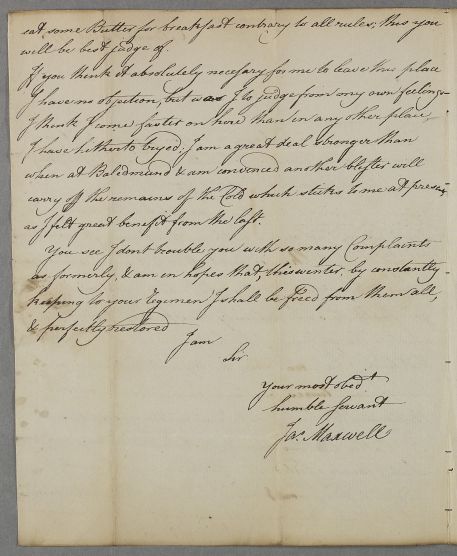 eat some Butter for breakfast contrary to all rules; this you
will be best judge of.
If you think it absolutely necessary for me to leave this place
I have no objection, but was I to judge from my own feelings
I think I come faster on here than in any other place
I have hitherto tryed. I am a great deal stronger than
when at Baldmund & am convinced another blister will
carry off the remains of the Cold which sticks to me at present
as I felt great benefit from the last.
You see I dont trouble you with so many Complaints
as formerly, & am in hopes that, this winter, by constantly
keeping to your Regimen I shall be freed from them all,
& perfectly restored
I am
Sir
Your most obedt
humble Servant
Jas. Maxwell